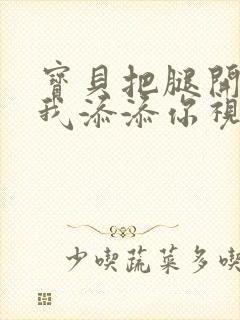 寶貝把腿開
我添添你視
少喫蔬菜多喫